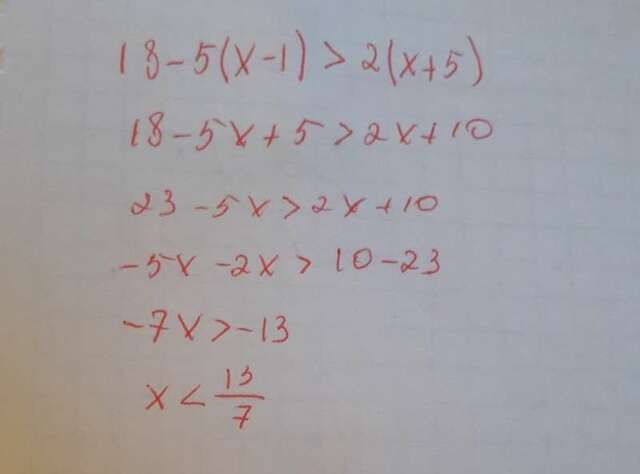 18-5(x-1)>2(x+5)
18-5x+5>2x+10
23-5x>2x+10
-5x-2x>10-23
-7x>-13
x<13/7